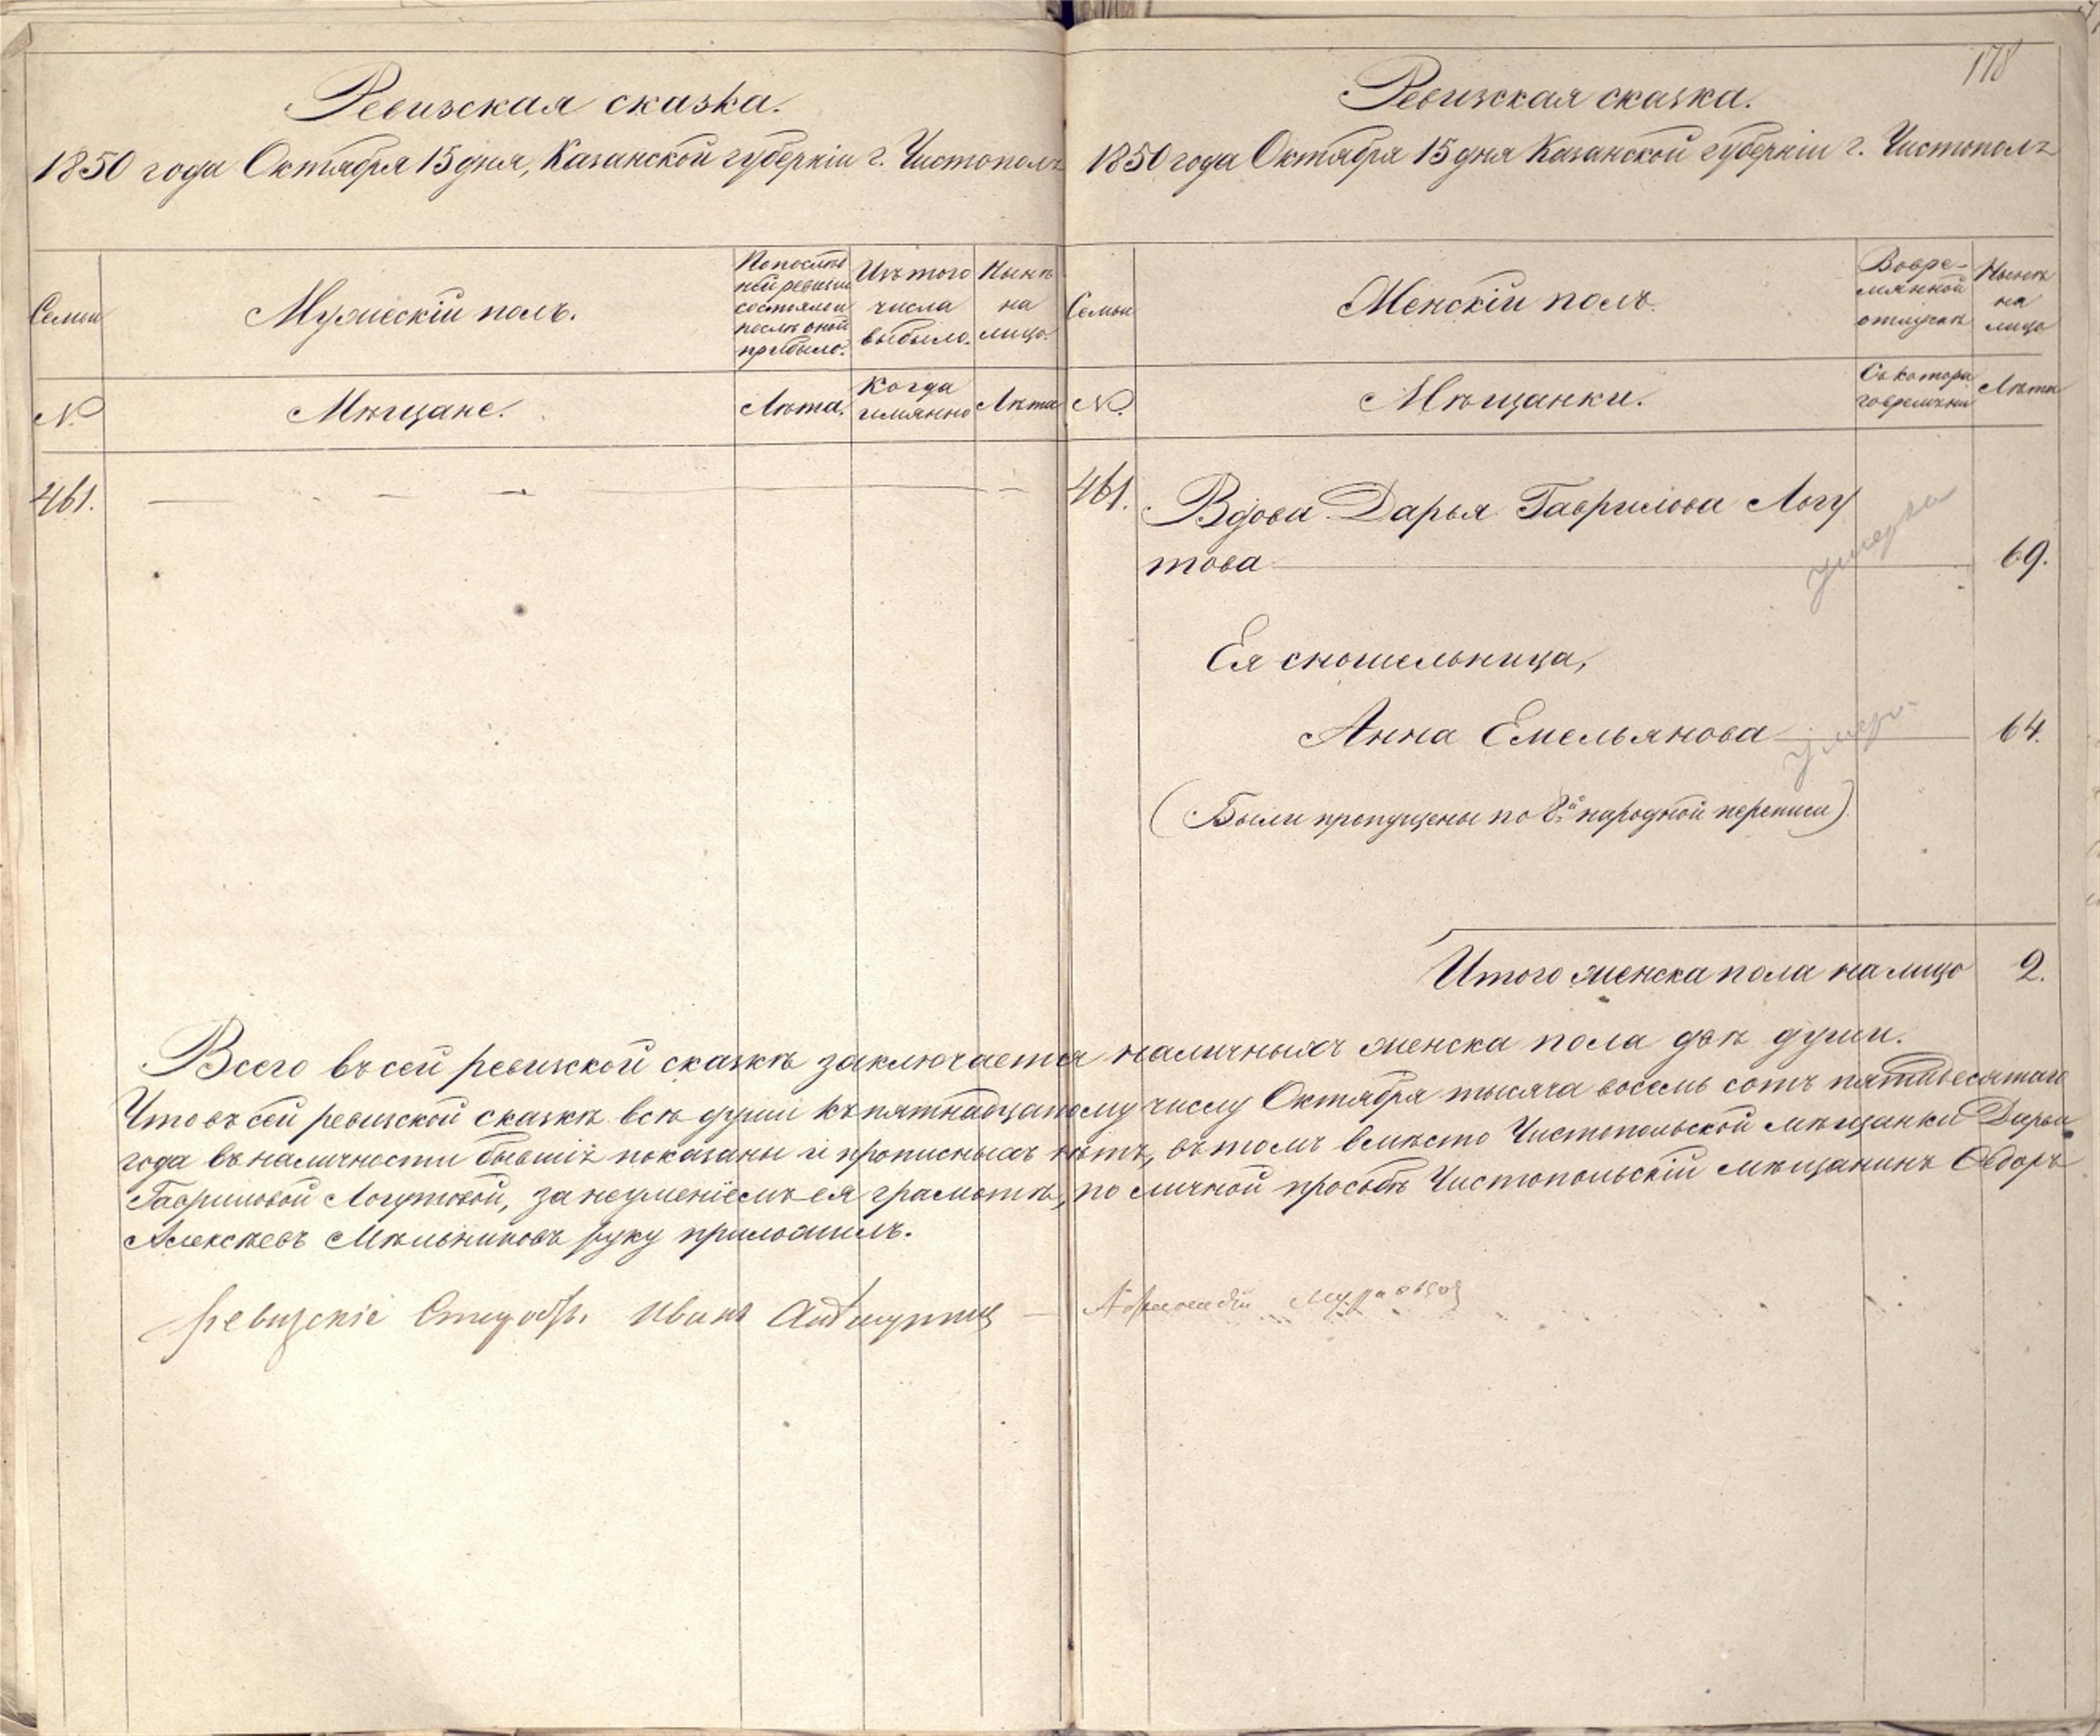 178
Ревизская сказка.
1850 года Октября 15 дня, Казанской губернiи г. Чистополь
Семьи
Мужескiй полъ.
По послѣд
ней ревизiи
состояло и
послѣ оной
прибыло.
Изъ того
числа
выбыло.
Нынѣ
на
лицо.
№
Мѣщане.
Лѣта.
Когда
имянно
Лѣта
461.
Ревизская сказка.
1850 года Октября 15 дня Казанской губернiи г. Чистополь
Семьи
Женскiй полъ
Во вре-
мянной
отлучкѣ
Нынѣ
на
лицо
№.
Мѣщанки.
Съ котора
го времяни
Лѣта
461.
Вдова Дарья Гаврилова Логу
това
69.
умерла
Ея сношельница,
Анна Емельянова
64.
умерла
(Были пропущены по 8й народной переписи)
Итого женска пола на лицо 2.
Всего въ сей ревизской сказкѣ заключается наличныхъ женска пола двѣ души.
Что въ сей ревизской сказкѣ всѣ души къ пятнадцатому числу Октября тысяча восемь сотъ пятидесятаго
года въ наличности бывшiя показаны и прописныхъ нѣтъ, въ томъ вмѣсто Чистопольской мѣщанки Дарьи
Гавриловой Логутовой, за неуменiемъ ея грамотѣ, по личной просьбѣ Чистопольскiй мѣщанинъ Ѳедоръ
Алексѣевъ Мѣльниковъ руку приложилъ.
Иванъ